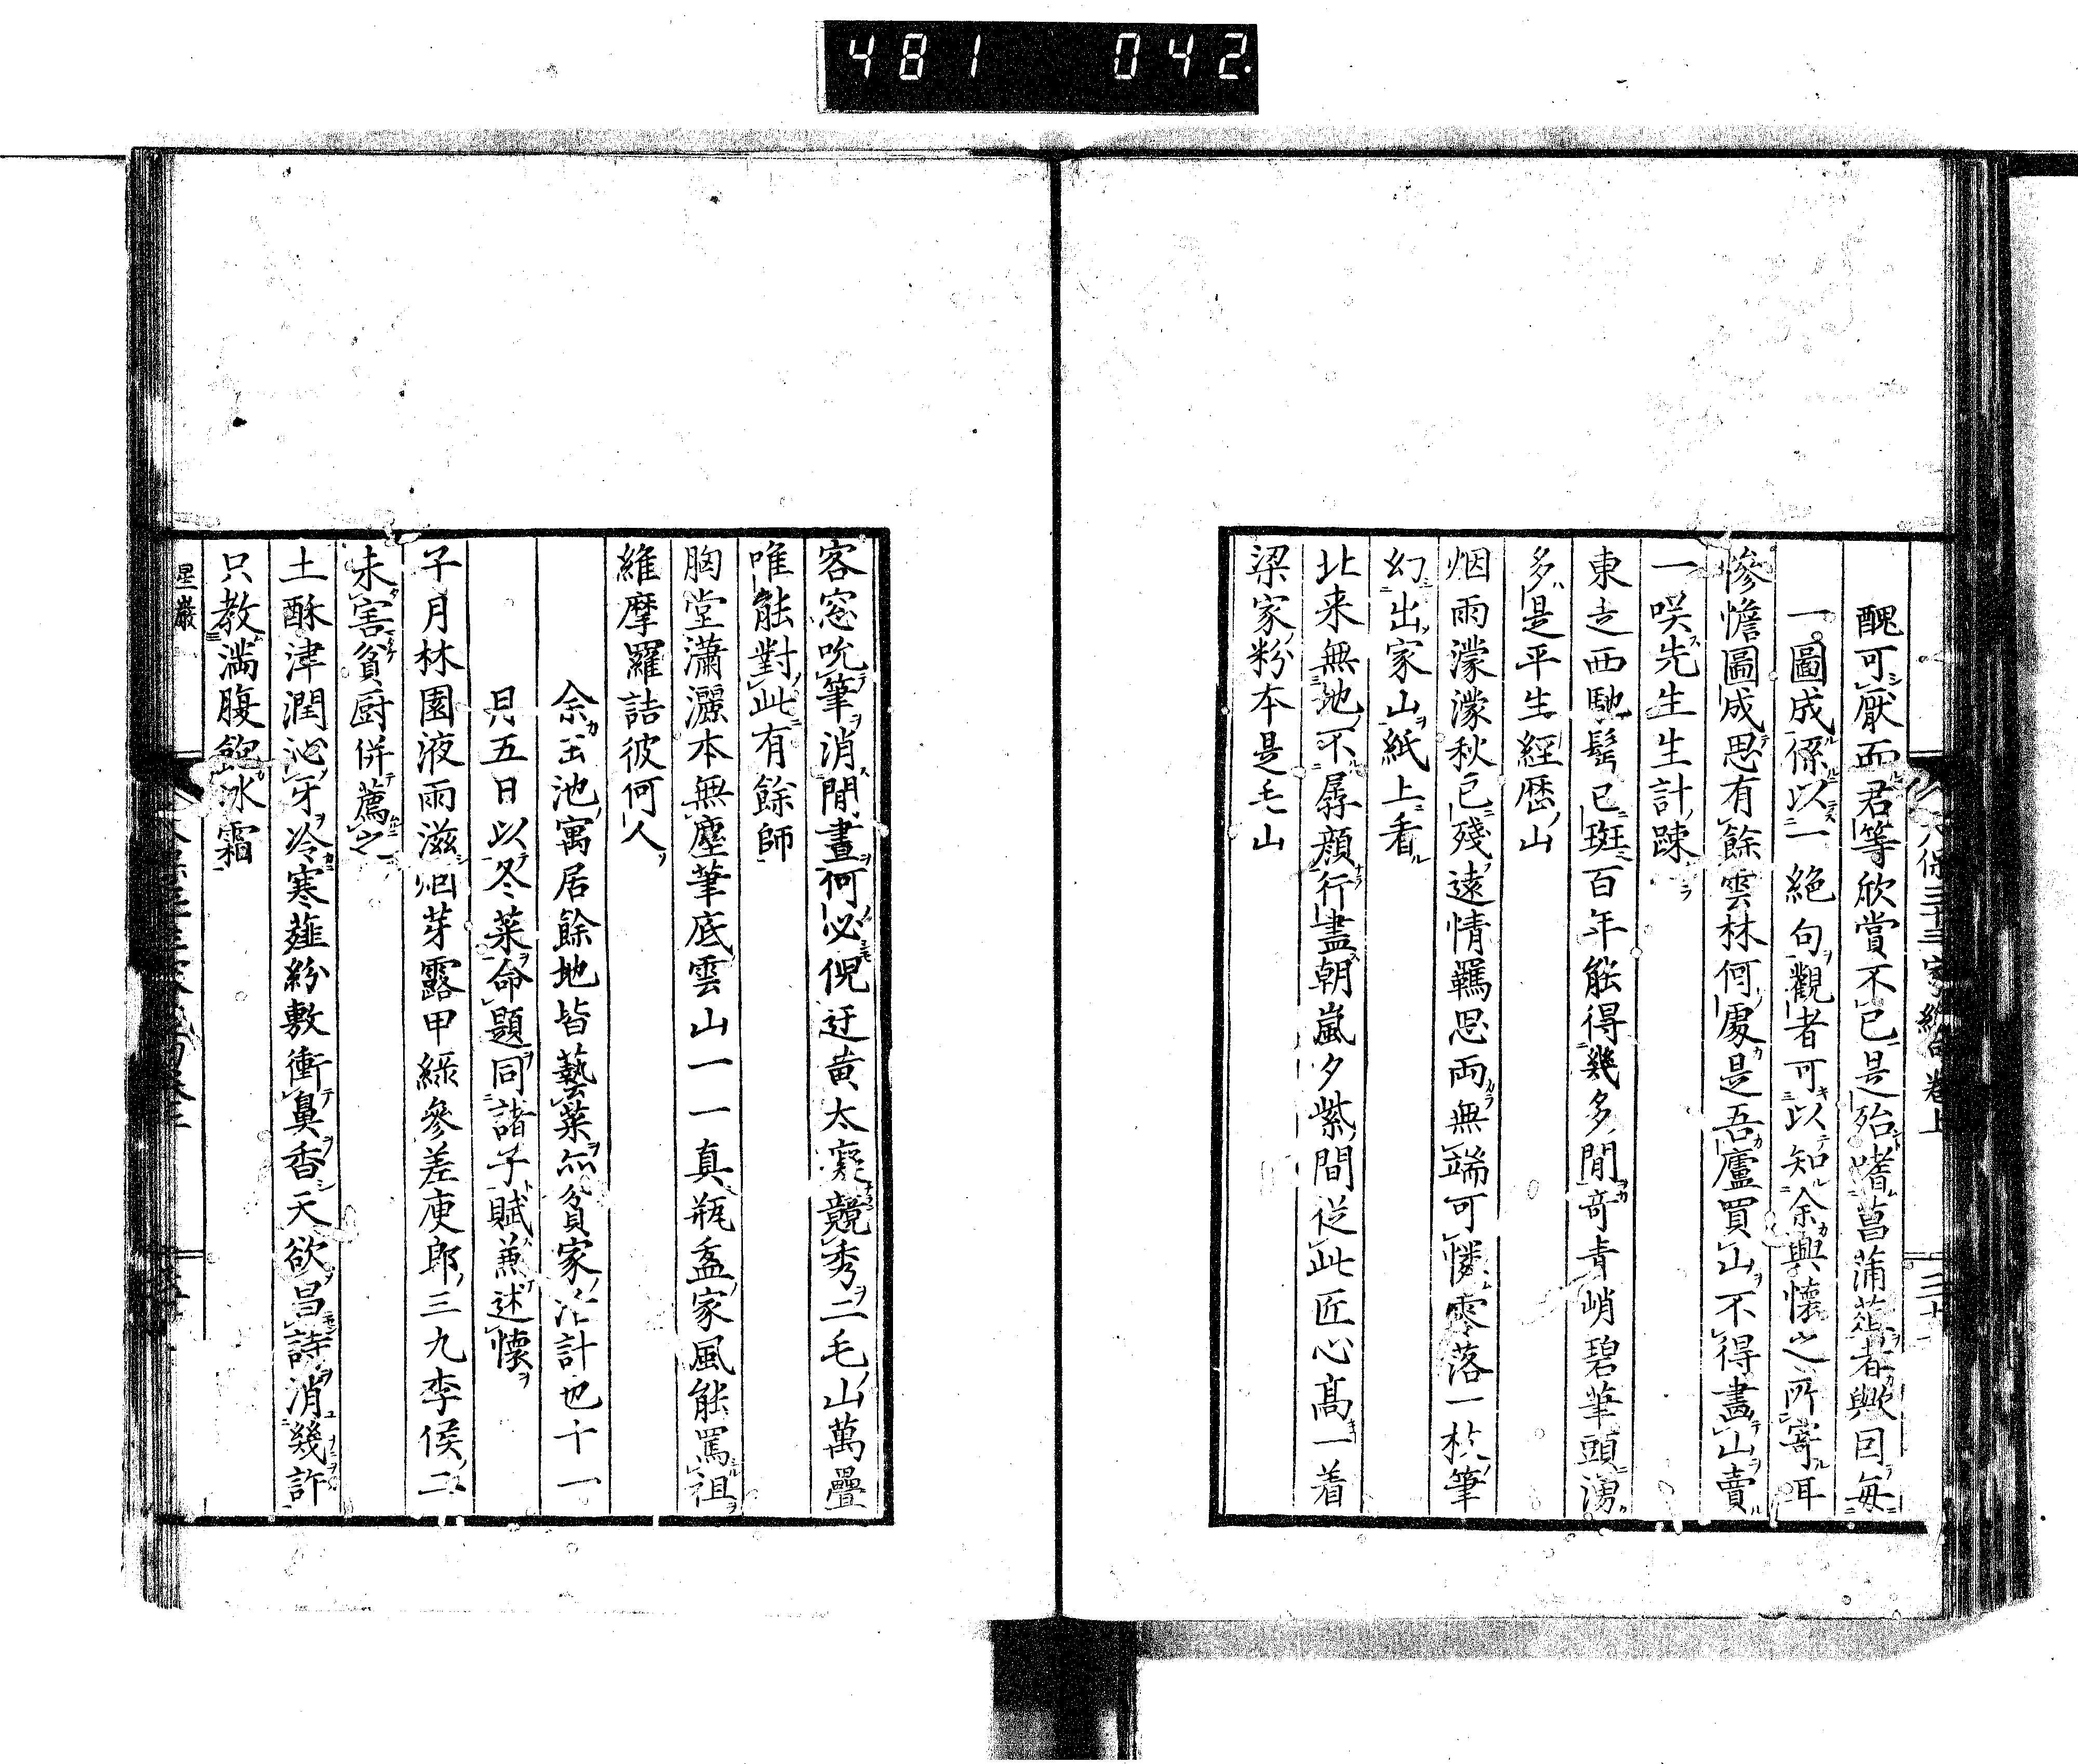 481 042.
醜可厭而君等欣賞不已是殆嗜菖蒲葅者歟因每
一圖成係以一絶句觀者可以知余興懷之所寄耳
慘憺圖成思有餘雲林何處是吾廬買山不得畫山賣
一咲先生生計踈
東走西馳髩已斑百年能得幾多閒奇青峭碧筆頭湧
多是平生經歷山
烟雨濛濛秋已殘遠情羈思兩無端可憐零落一枝筆
幻出家山紙上看
北来無地不孱顔行盡朝嵐夕紫間従此匠心髙一着
梁家粉本是毛山
客窓吮筆消閒晝何必倪迂黄太癡競秀二毛山萬疊
唯能對此有餘師
胸堂瀟灑本無塵筆底雲山一一真瓶盋家風能罵祖
維摩羅詰彼何人
余玉池寓居餘地皆藝菜亦貧家活計也十一
月五日以冬菜命題同諸子賦兼述懷
子月林園液雨滋烟芽露甲緑參差庾郎三九李侯二
未害貧厨併薦之
土酥津潤沁牙冷寒薤紛敷衝鼻香天欲昌詩消幾許
只教満腹飽冰霜
星巖